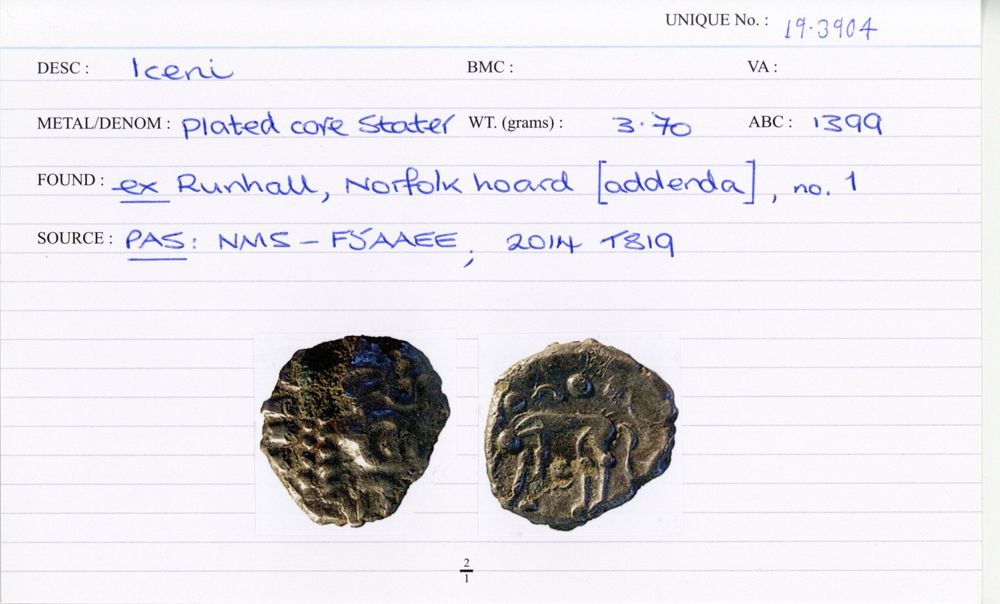 UNIQUE No. : 19.3904
DESC : Iceni BMC : VA :
METAL/DENOM : Plated core Stater WT. (grams) : 3.70 ABC : 1399
FOUND : ex Runhall, Norfolk hoard [addenda], no. 1
SOURCE : PAS: NMS - F5AAEE, 2014 T819
2
1